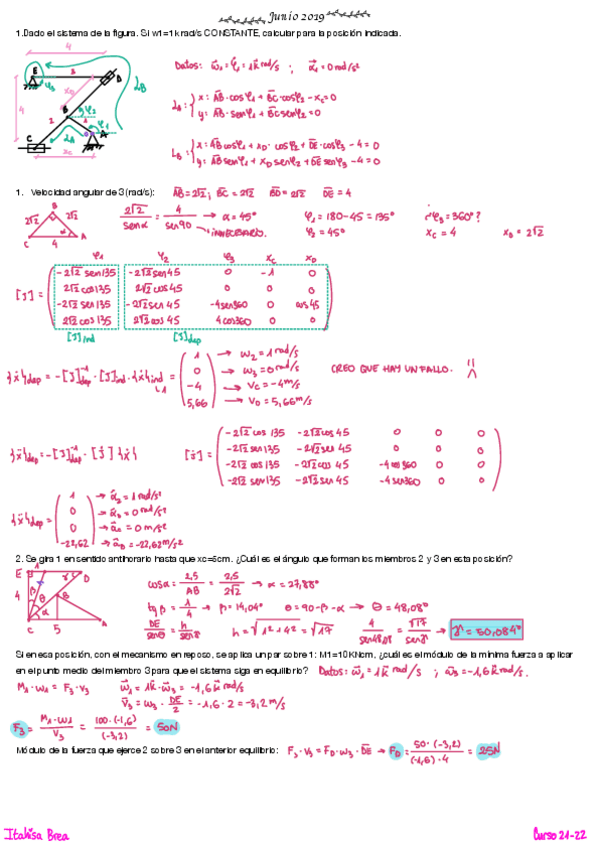 Junio 2019
1.Dado el sistema de la figura. Si w1=1k rad/s CONSTANTE, calcular para la posición indicada.
Datos: ω⃗₁ = φ̇₁ = 1k⃗ rad/s ; α⃗₁ = 0 rad/s²
x: AB·cosφ₁ + BC·cosφ₂ - xc = 0
y: AB·senφ₁ + BC senφ₂ = 0
x: AB cosφ₁ + xD·cosφ₂ + DE·cosφ₃ - 4 = 0
y: AB senφ₁ + xD senφ₂ + DE senφ₃ - 4 = 0
1. Velocidad angular de 3 (rad/s): AB = 2√2 ; BC = 2√2 BD = 2√2 DE = 4
2√2/senα = 4/sen90 → α = 45° φ₁ = 180-45 = 135° ¿φ₃ = 360°?
φ₂ = 45° xc = 4 xD = 2√2
φ₁ φ₂ φ₃ xc xD
-2√2 sen135 -2√2 sen45 0 -1 0
[J] = 2√2 cos135 2√2 cos45 0 0 0
-2√2 sen135 -2√2 sen45 -4sen360 0 cos45
2√2 cos135 2√2 cos45 4cos360 0 0
[J]ind [J]dep
{ẋ}dep = -[J]⁻¹dep · [J]ind · {ẋ}ind = 1 → ω₂ = 1 rad/s
0 → ω₃ = 0 rad/s
-4 → Vc = -4 m/s
5,66 → VD = 5,66 m/s
CREO QUE HAY UN FALLO.
{ẍ}dep = -[J]⁻¹dep · [J̇] {ẋ}
[J̇] = -2√2 cos135 -2√2 cos45 0 0 0
-2√2 sen135 -2√2 sen45 0 0 0
-2√2 cos135 -2√2 cos45 -4cos360 0 0
-2√2 sen135 -2√2 sen45 -4sen360 0 0
{ẍ}dep = 1 → α⃗₂ = 1 rad/s²
0 → α⃗₃ = 0 rad/s²
0 → a⃗c = 0 m/s²
-22,62 → a⃗D = -22,62 m/s²
2. Se gira 1 en sentido antihorario hasta que xc=5cm. ¿Cuál es el ángulo que forman los miembros 2 y 3 en esta posición?
cosα = 2,5/AB = 2,5/2√2 → α = 27,88°
tgβ = 1/4 → β = 14,04° θ = 90-β-α → θ = 48,08°
DE/senθ = h/senγ h = √(1²+4²) = √17 4/sen48,08 = √17/senγ → γ = 50,084°
Si en esa posición, con el mecanismo en reposo, se aplica un par sobre 1: M1=10KNcm, ¿cuál es el módulo de la mínima fuerza a aplicar
en el punto medio del miembro 3 para que el sistema siga en equilibrio? Datos: ω⃗₁ = 1k⃗ rad/s ; ω⃗₃ = -1,6k⃗ rad/s.
M₁·ω₁ = F₃·V₃ ω⃗₁ = 1k⃗·ω⃗₃ = -1,6k⃗ rad/s
V⃗₃ = ω₃·DE/2 = -1,6·2 = -3,2 m/s
F₃ = M₁·ω₁/V₃ = 100·(-1,6)/(-3,2) = 50N
Módulo de la fuerza que ejerce 2 sobre 3 en el anterior equilibrio: F₃·V₃ = FD·ω₃·DE → FD = 50·(-3,2)/(-1,6)·4 = 25N
Italisa Brea
Curso 21-22